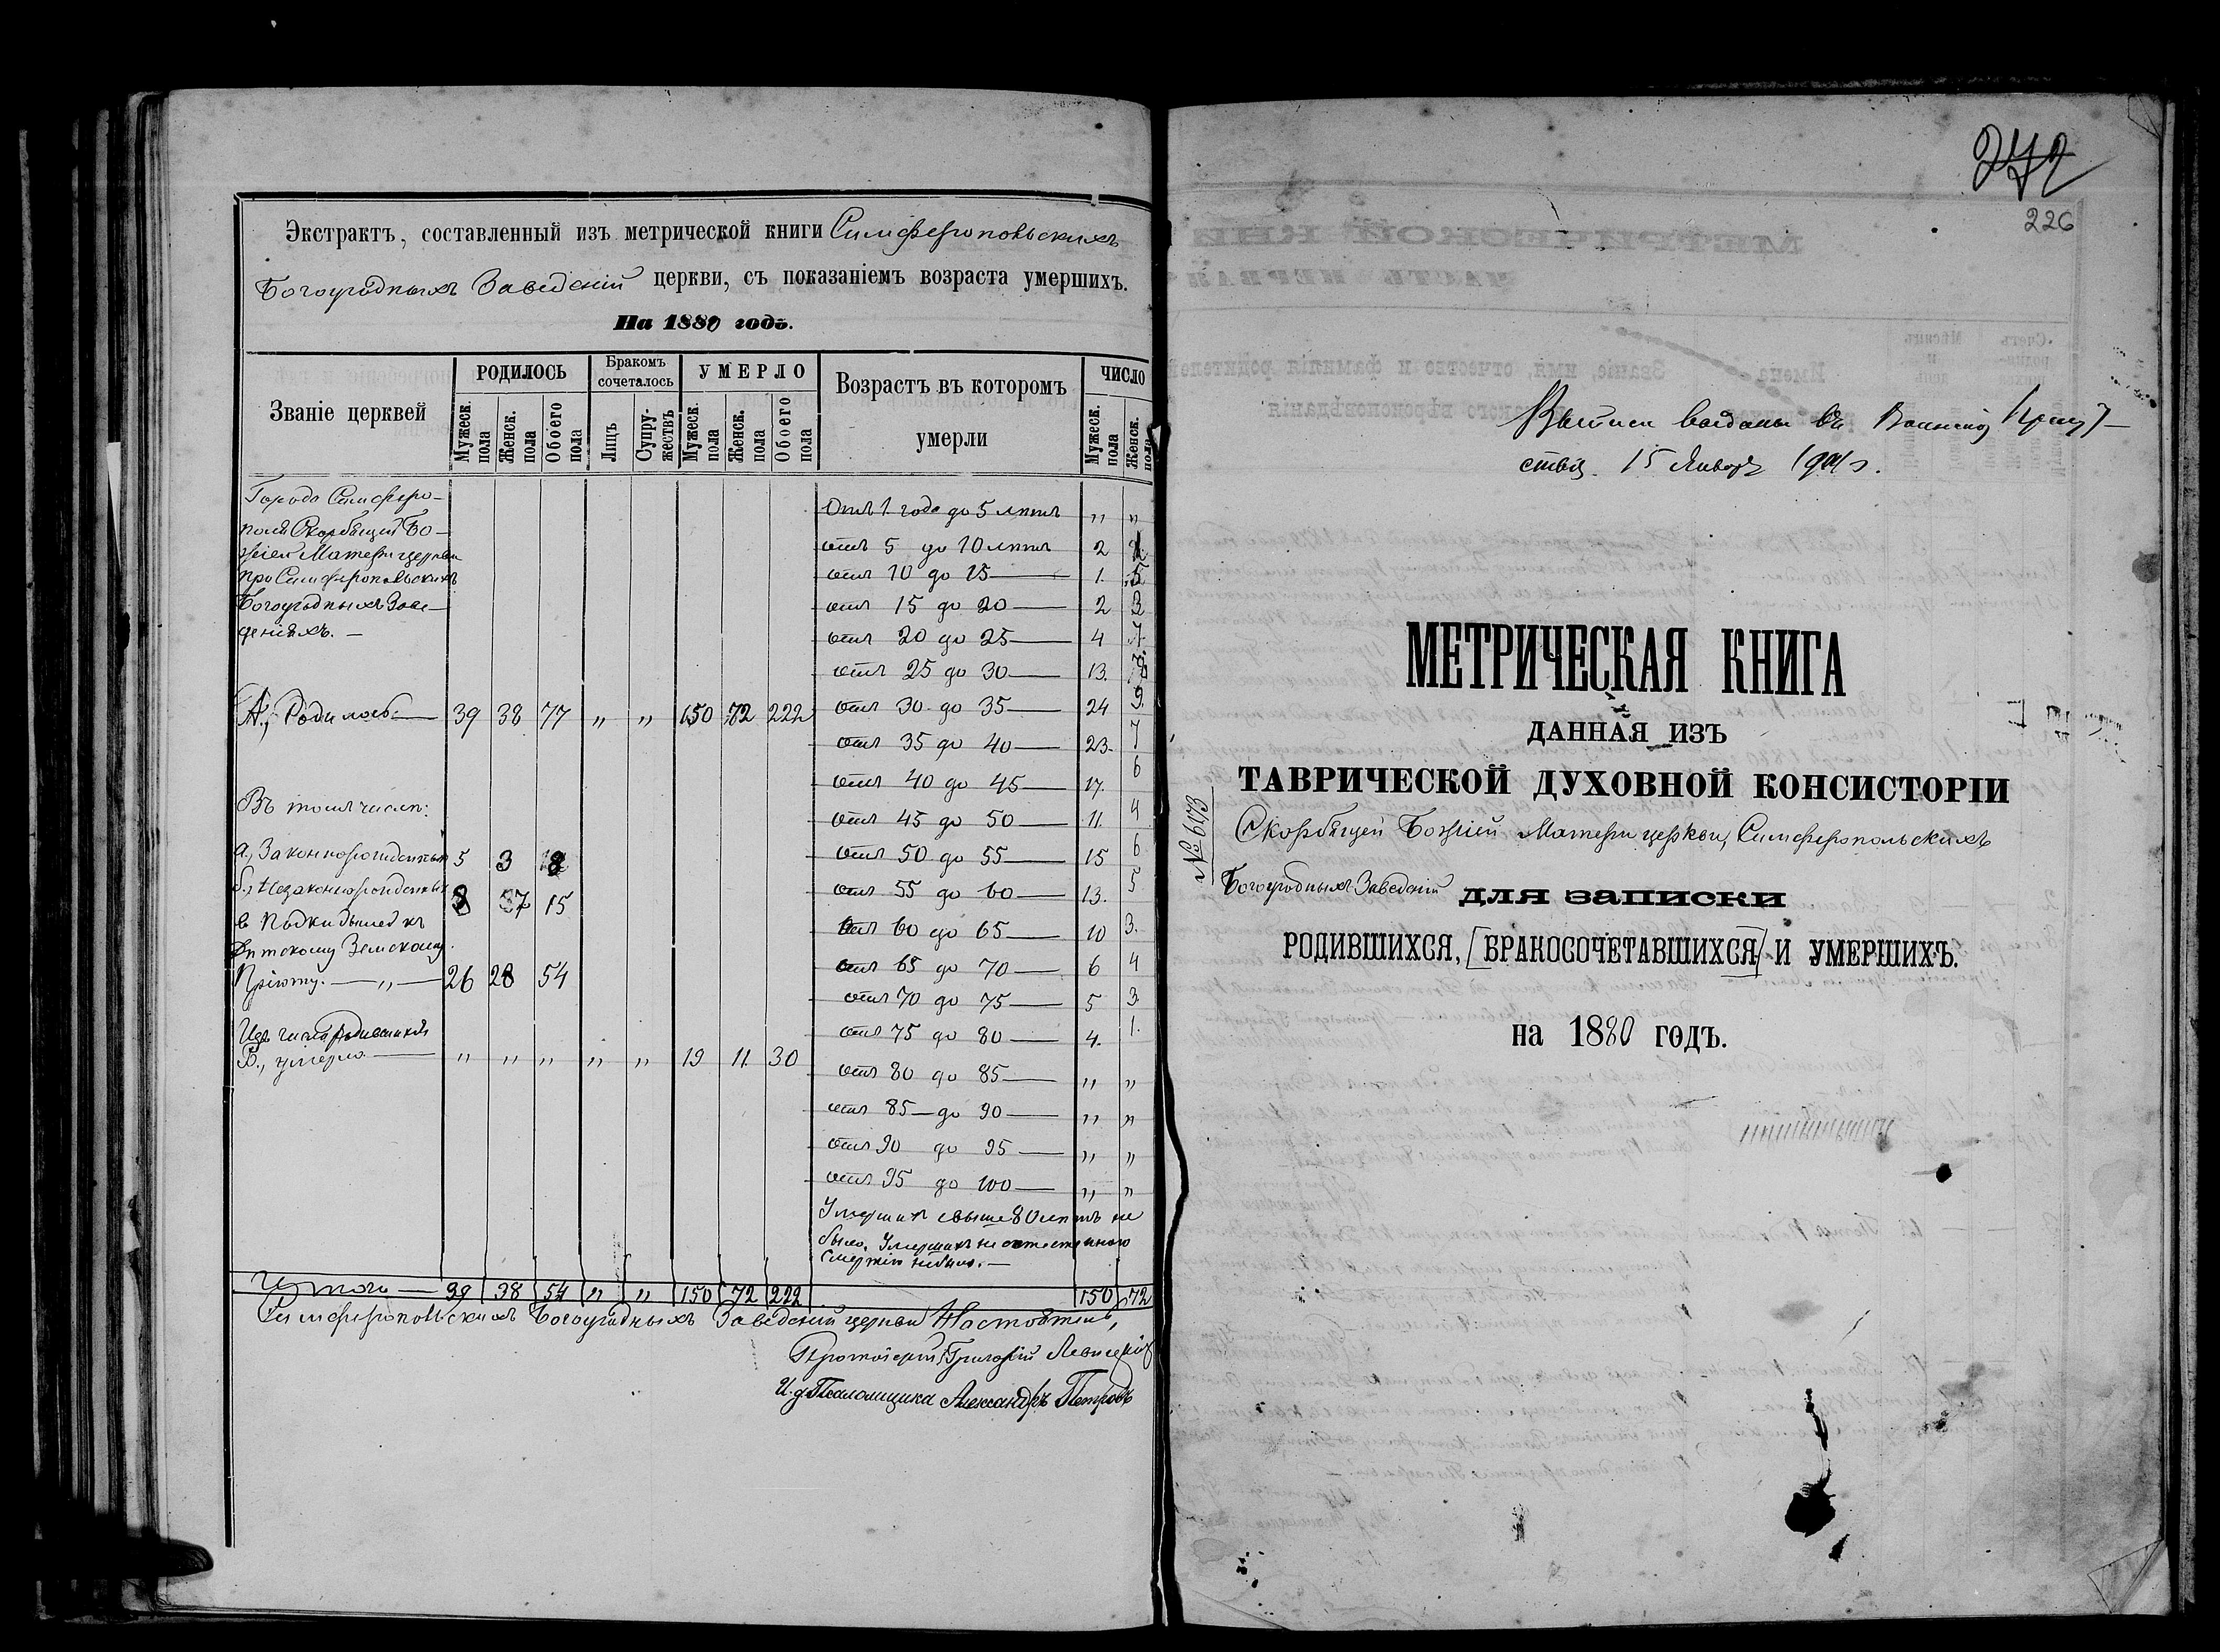 Экстрактъ, составленный изъ метрической книги Симферопольскихъ
Богоугодныхъ Заведеній церкви, съ показаніемъ возраста умершихъ.
На 1880 годъ.
Званіе церквей
РОДИЛОСЬ
Мужеск. пола
Женск. пола
Обоего пола
Бракомъ сочеталось
Лицъ
Супружествъ
УМЕРЛО
Мужеск. пола
Женск. пола
Обоего пола
Возрастъ въ которомъ
умерли
ЧИСЛО
Мужеск. пола
Женск. пола
Города Симферо-
поля Скорбящей Бо-
жіей Матери церкви
при Симферопольскихъ
Богоугодныхъ Заве-
деніяхъ. —
А., Родилось — 39 38 77 „ „ 150 72 222
Въ томъ числѣ:
а, Законнорожденныхъ 5 3 8
б, Незаконнорожденныхъ 8 7 15
в Подкидышей къ
Дѣтскому Земскому
Пріюту. — „ — 26 28 54
Изъ числа родившихся
В., умерло — „ „ „ „ „ 19 11 30
Отъ 1 года до 5 лѣтъ „ „
отъ 5 до 10 лѣтъ 2
отъ 10 до 15 — 1. 5
отъ 15 до 20 — 2 3
отъ 20 до 25 — 4
отъ 25 до 30 — 13.
отъ 30 до 35 — 24 9.
отъ 35 до 40 — 23. 7
отъ 40 до 45 — 17. 6
отъ 45 до 50 — 11. 4
отъ 50 до 55 — 15 6
отъ 55 до 60 — 13. 5
отъ 60 до 65 — 10 3.
отъ 65 до 70 — 6 4
отъ 70 до 75 — 5 3
отъ 75 до 80 — 4. 1.
отъ 80 до 85 — „ „
отъ 85 — до 90 — „ „
отъ 90 до 95 — „ „
отъ 95 до 100 — „ „
Умершихъ свыше 80 лѣтъ не
было. Умершихъ не естественною
смертію небыло. —
Итого — 39 38 54 „ „ 150 72 222 150 72
Симферопольскихъ Богоугодныхъ Заведеній церкви Настоятель,
Протоіерей Григорій
И. д. Псаломщика Александръ Петровъ
272
226
Выписи выданы
15 Января 1901 г.
МЕТРИЧЕСКАЯ КНИГА
ДАННАЯ ИЗЪ
ТАВРИЧЕСКОЙ ДУХОВНОЙ КОНСИСТОРІИ
№ 6173
Скорбящей Божіей Матери церкви, Симферопольскихъ
Богоугодныхъ Заведеній для записки
РОДИВШИХСЯ, [БРАКОСОЧЕТАВШИХСЯ] И УМЕРШИХЪ.
на 1880 годъ.